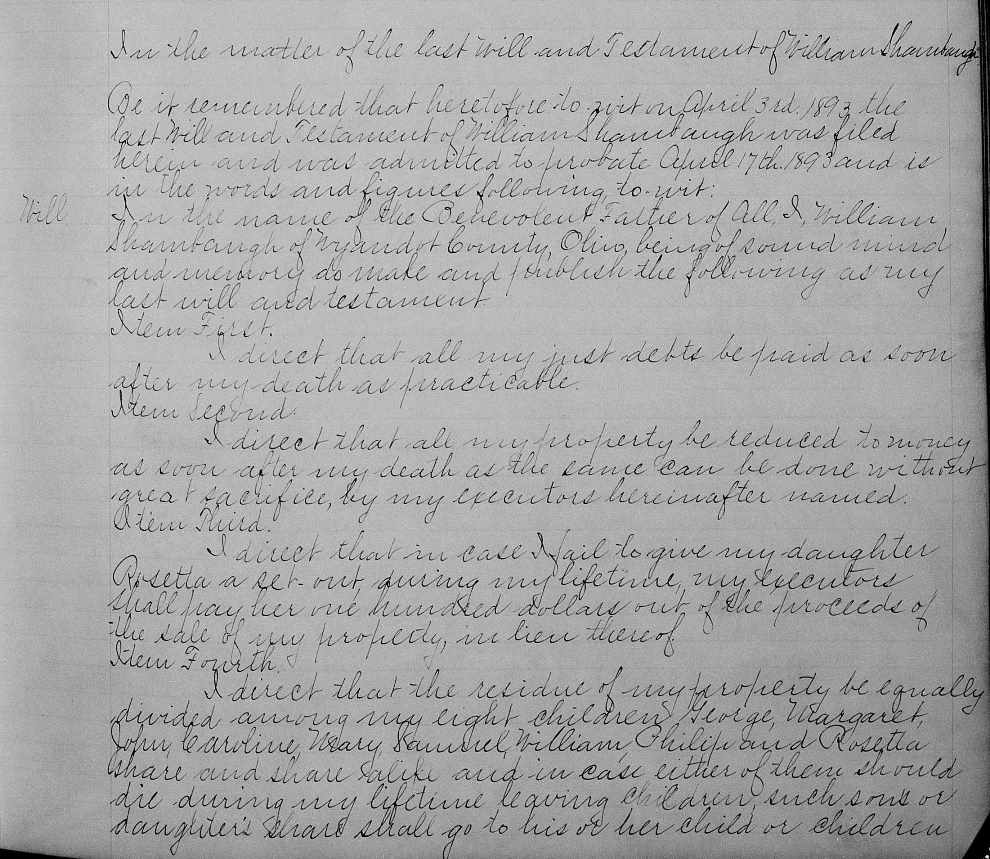 In the matter of the last Will and Testament of William Shambaugh
Be it remembered that heretofore to-wit on April 3rd. 1893 the
last Will and Testament of William Shambaugh was filed
herein and was admitted to probate April 17th. 1893 and is
in the words and figures following to-wit:
Will
In the name of the Benevolent Father of All, I, William
Shambaugh of Wyandot County, Ohio, being of sound mind
and memory do make and publish the following as my
last will and testament
Item First.
I direct that all my just debts be paid as soon
after my death as practicable.
Item Second.
I direct that all my property be reduced to money
as soon after my death as the same can be done without
great sacrifice, by my executors hereinafter named.
Item Third.
I direct that in case I fail to give my daughter
Rosetta a set-out, during my lifetime, my executors
shall pay her one hundred dollars out of the proceeds of
the sale of my property, in lieu thereof.
Item Fourth.
I direct that the residue of my property be equally
divided among my eight children George, Margaret,
John, Caroline, Mary, Samuel, William, Philip and Rosetta
share and share alike and in case either of them should
die during my lifetime leaving children, such sons or
daughter's share shall go to his or her child or children